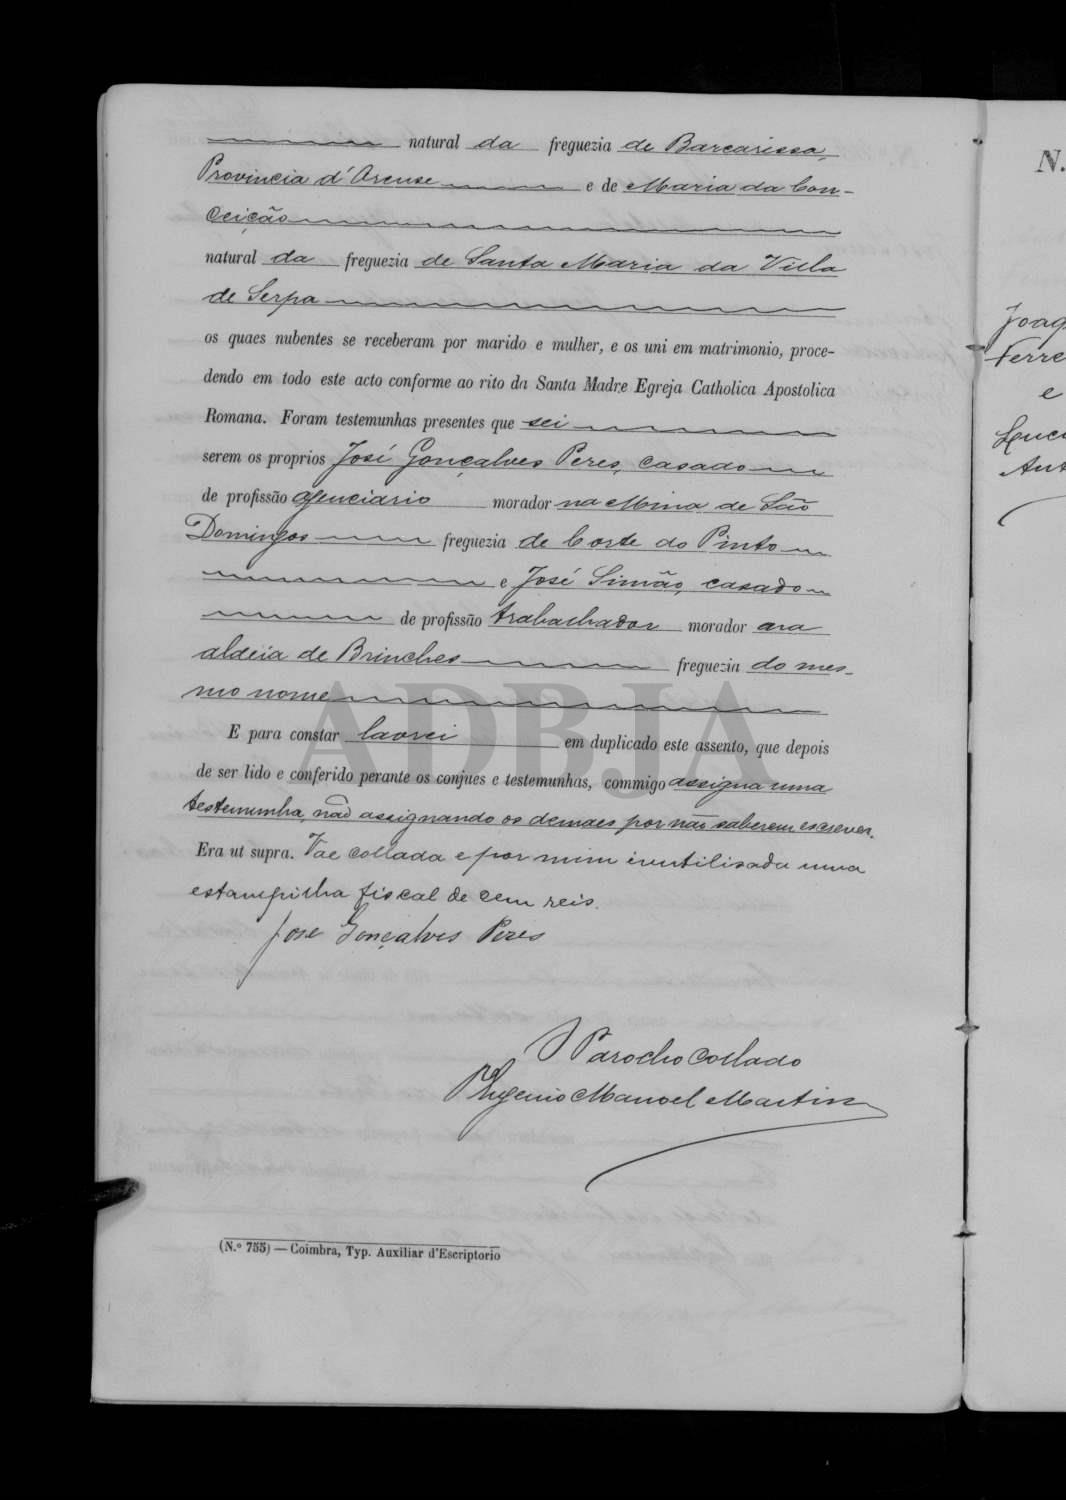 natural da freguezia de Barcarissa,
Provincia d'Orense e de Maria da Con-
ceição
natural da freguezia de Santa Maria da Villa
de Serpa
os quaes nubentes se receberam por marido e mulher, e os uni em matrimonio, proce-
dendo em todo este acto conforme ao rito da Santa Madre Egreja Catholica Apostolica
Romana. Foram testemunhas presentes que sei
serem os proprios José Gonçalves Peres, casado
de profissão agenciario morador na Mina de São
Domingos freguezia de Corte do Pinto
e José Simão, casado
de profissão trabalhador morador na
aldeia de Brinches freguezia do mes-
mo nome
ADBJA
E para constar lavrei em duplicado este assento, que depois
de ser lido e conferido perante os conjues e testemunhas, commigo assigna uma
testemunha, não assignando os demaes por não saberem escrever.
Era ut supra. Vae collada e por mim inutilisada uma
estampilha fiscal de cem reis.
Jose Gonçalves Peres
O Parocho Collado
Eugenio Manoel Martins
(N.º 755) — Coimbra, Typ. Auxiliar d'Escriptorio
N.
Joaq
Ferre
e
Luci
Ant